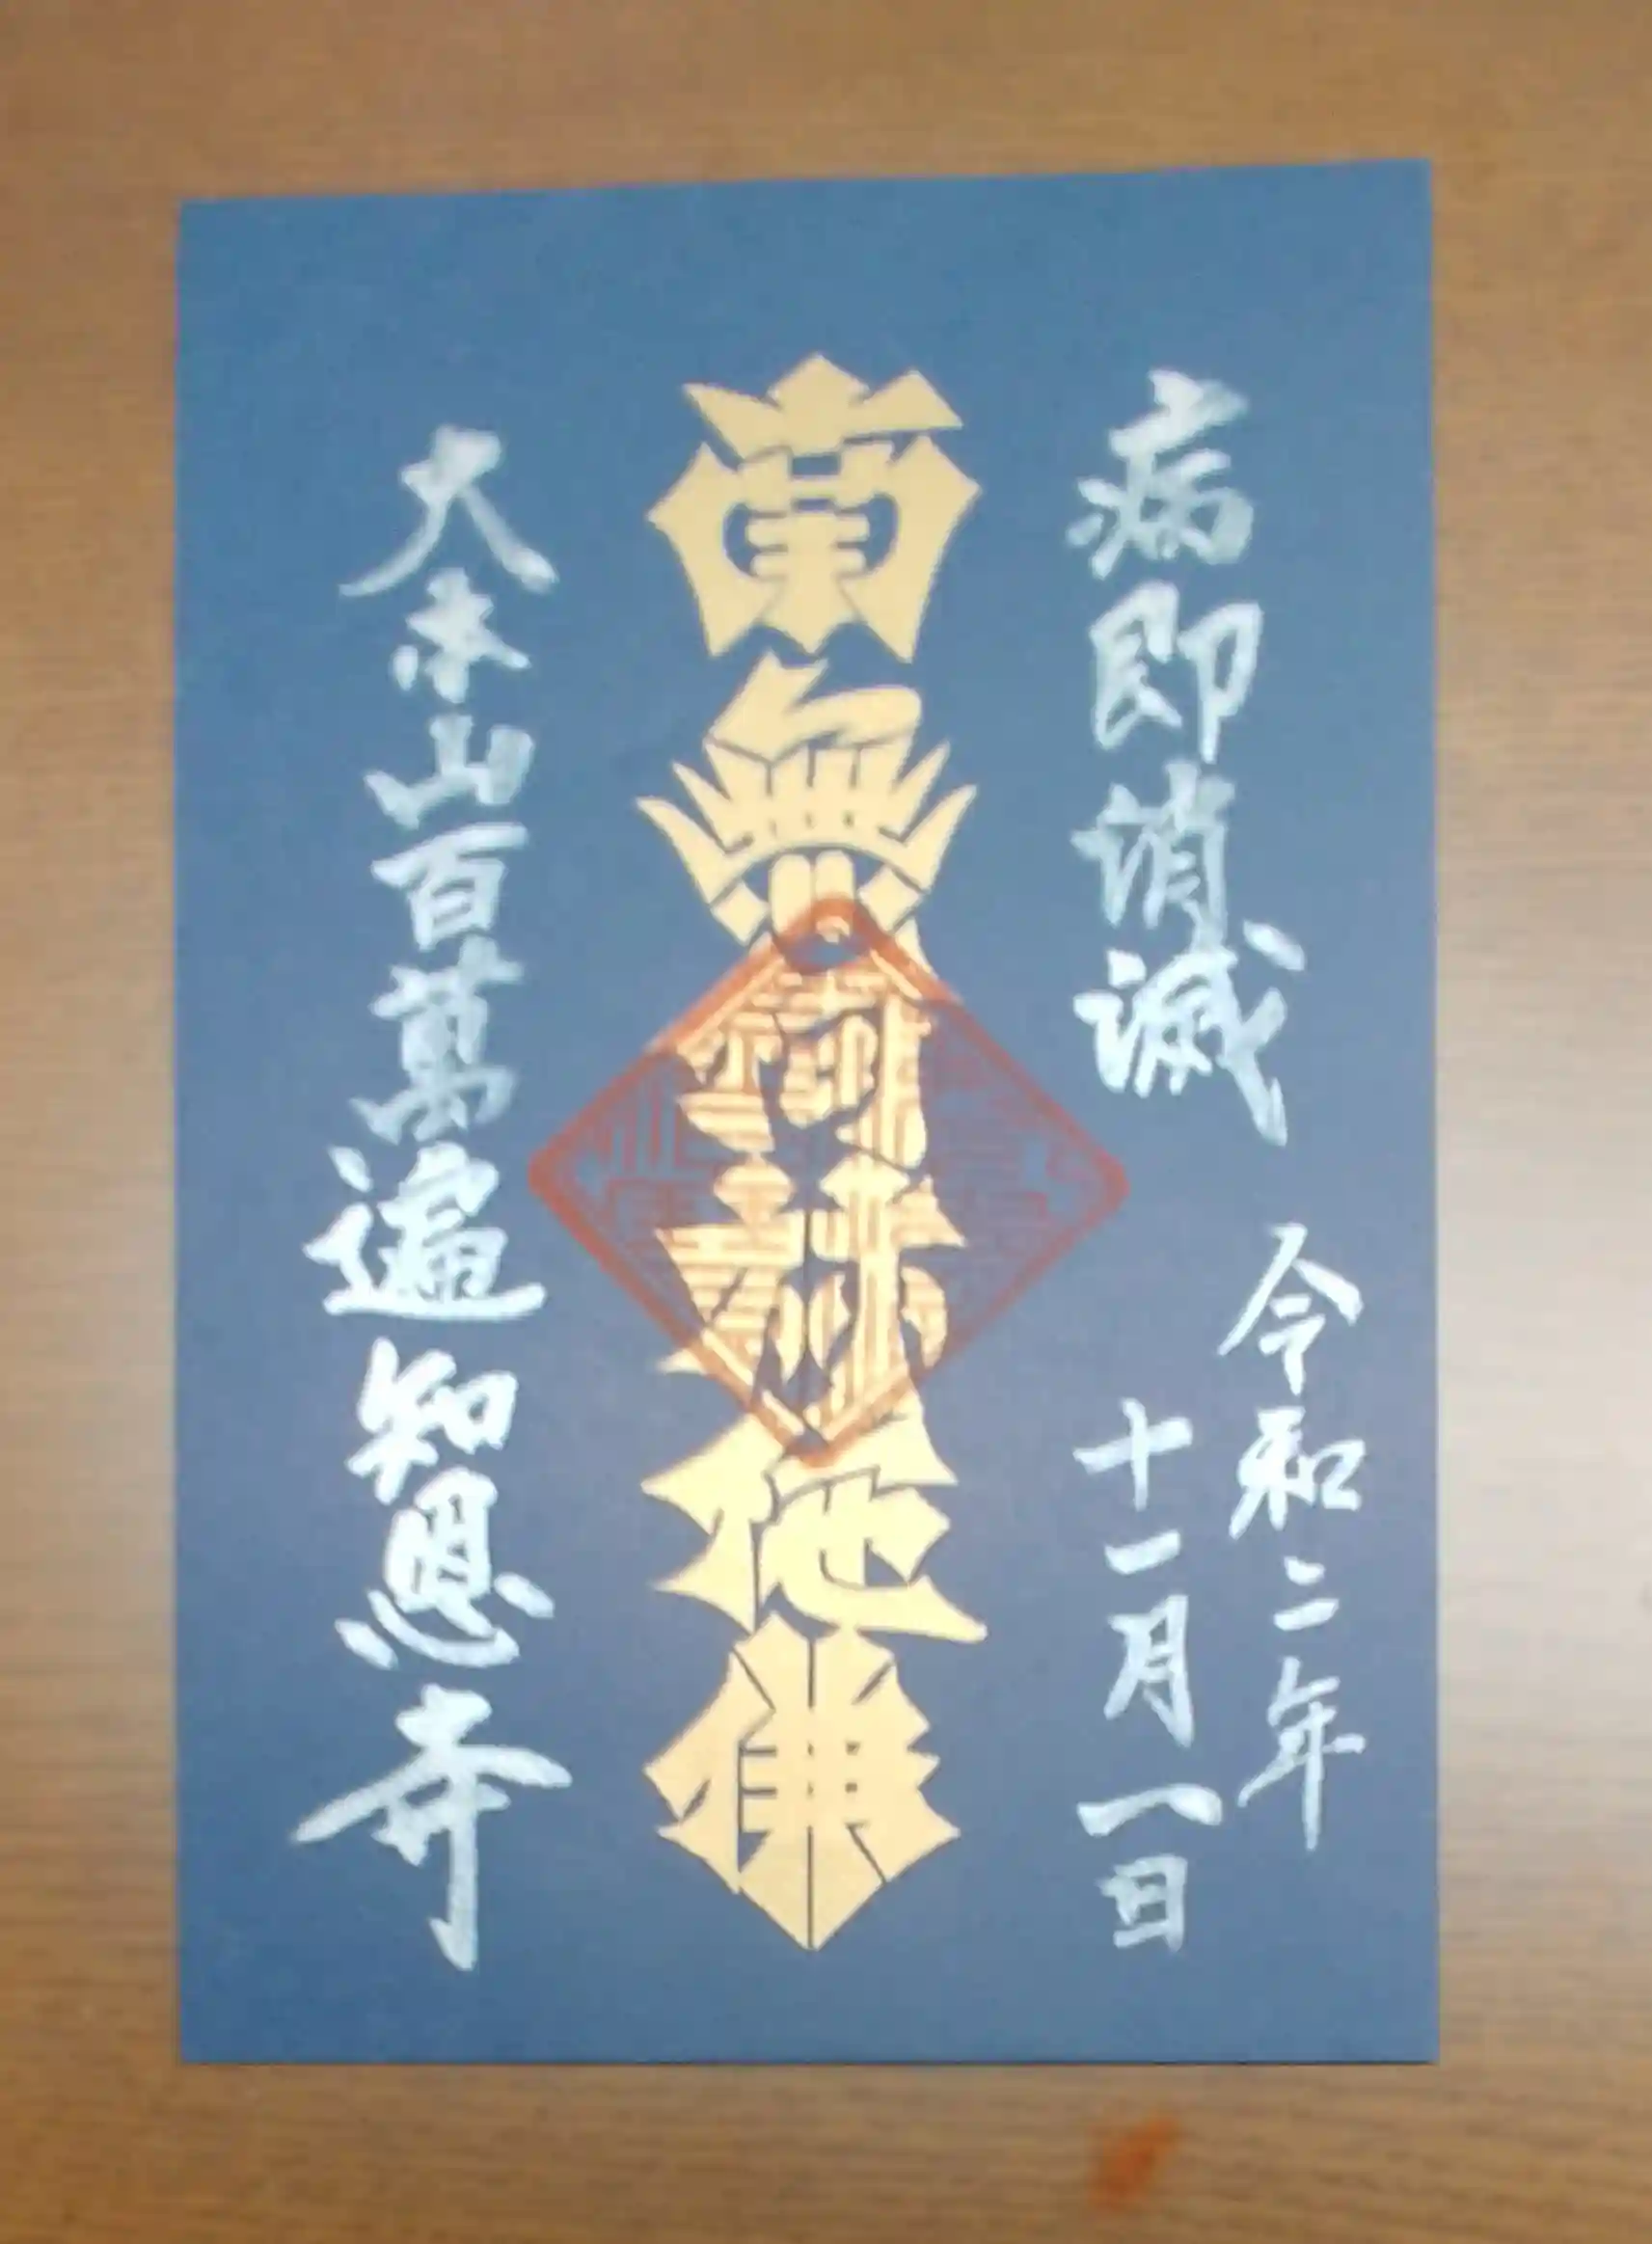 病即消滅
令和二年
十一月一日
南無阿弥陀佛
大本山百萬遍知恩寺